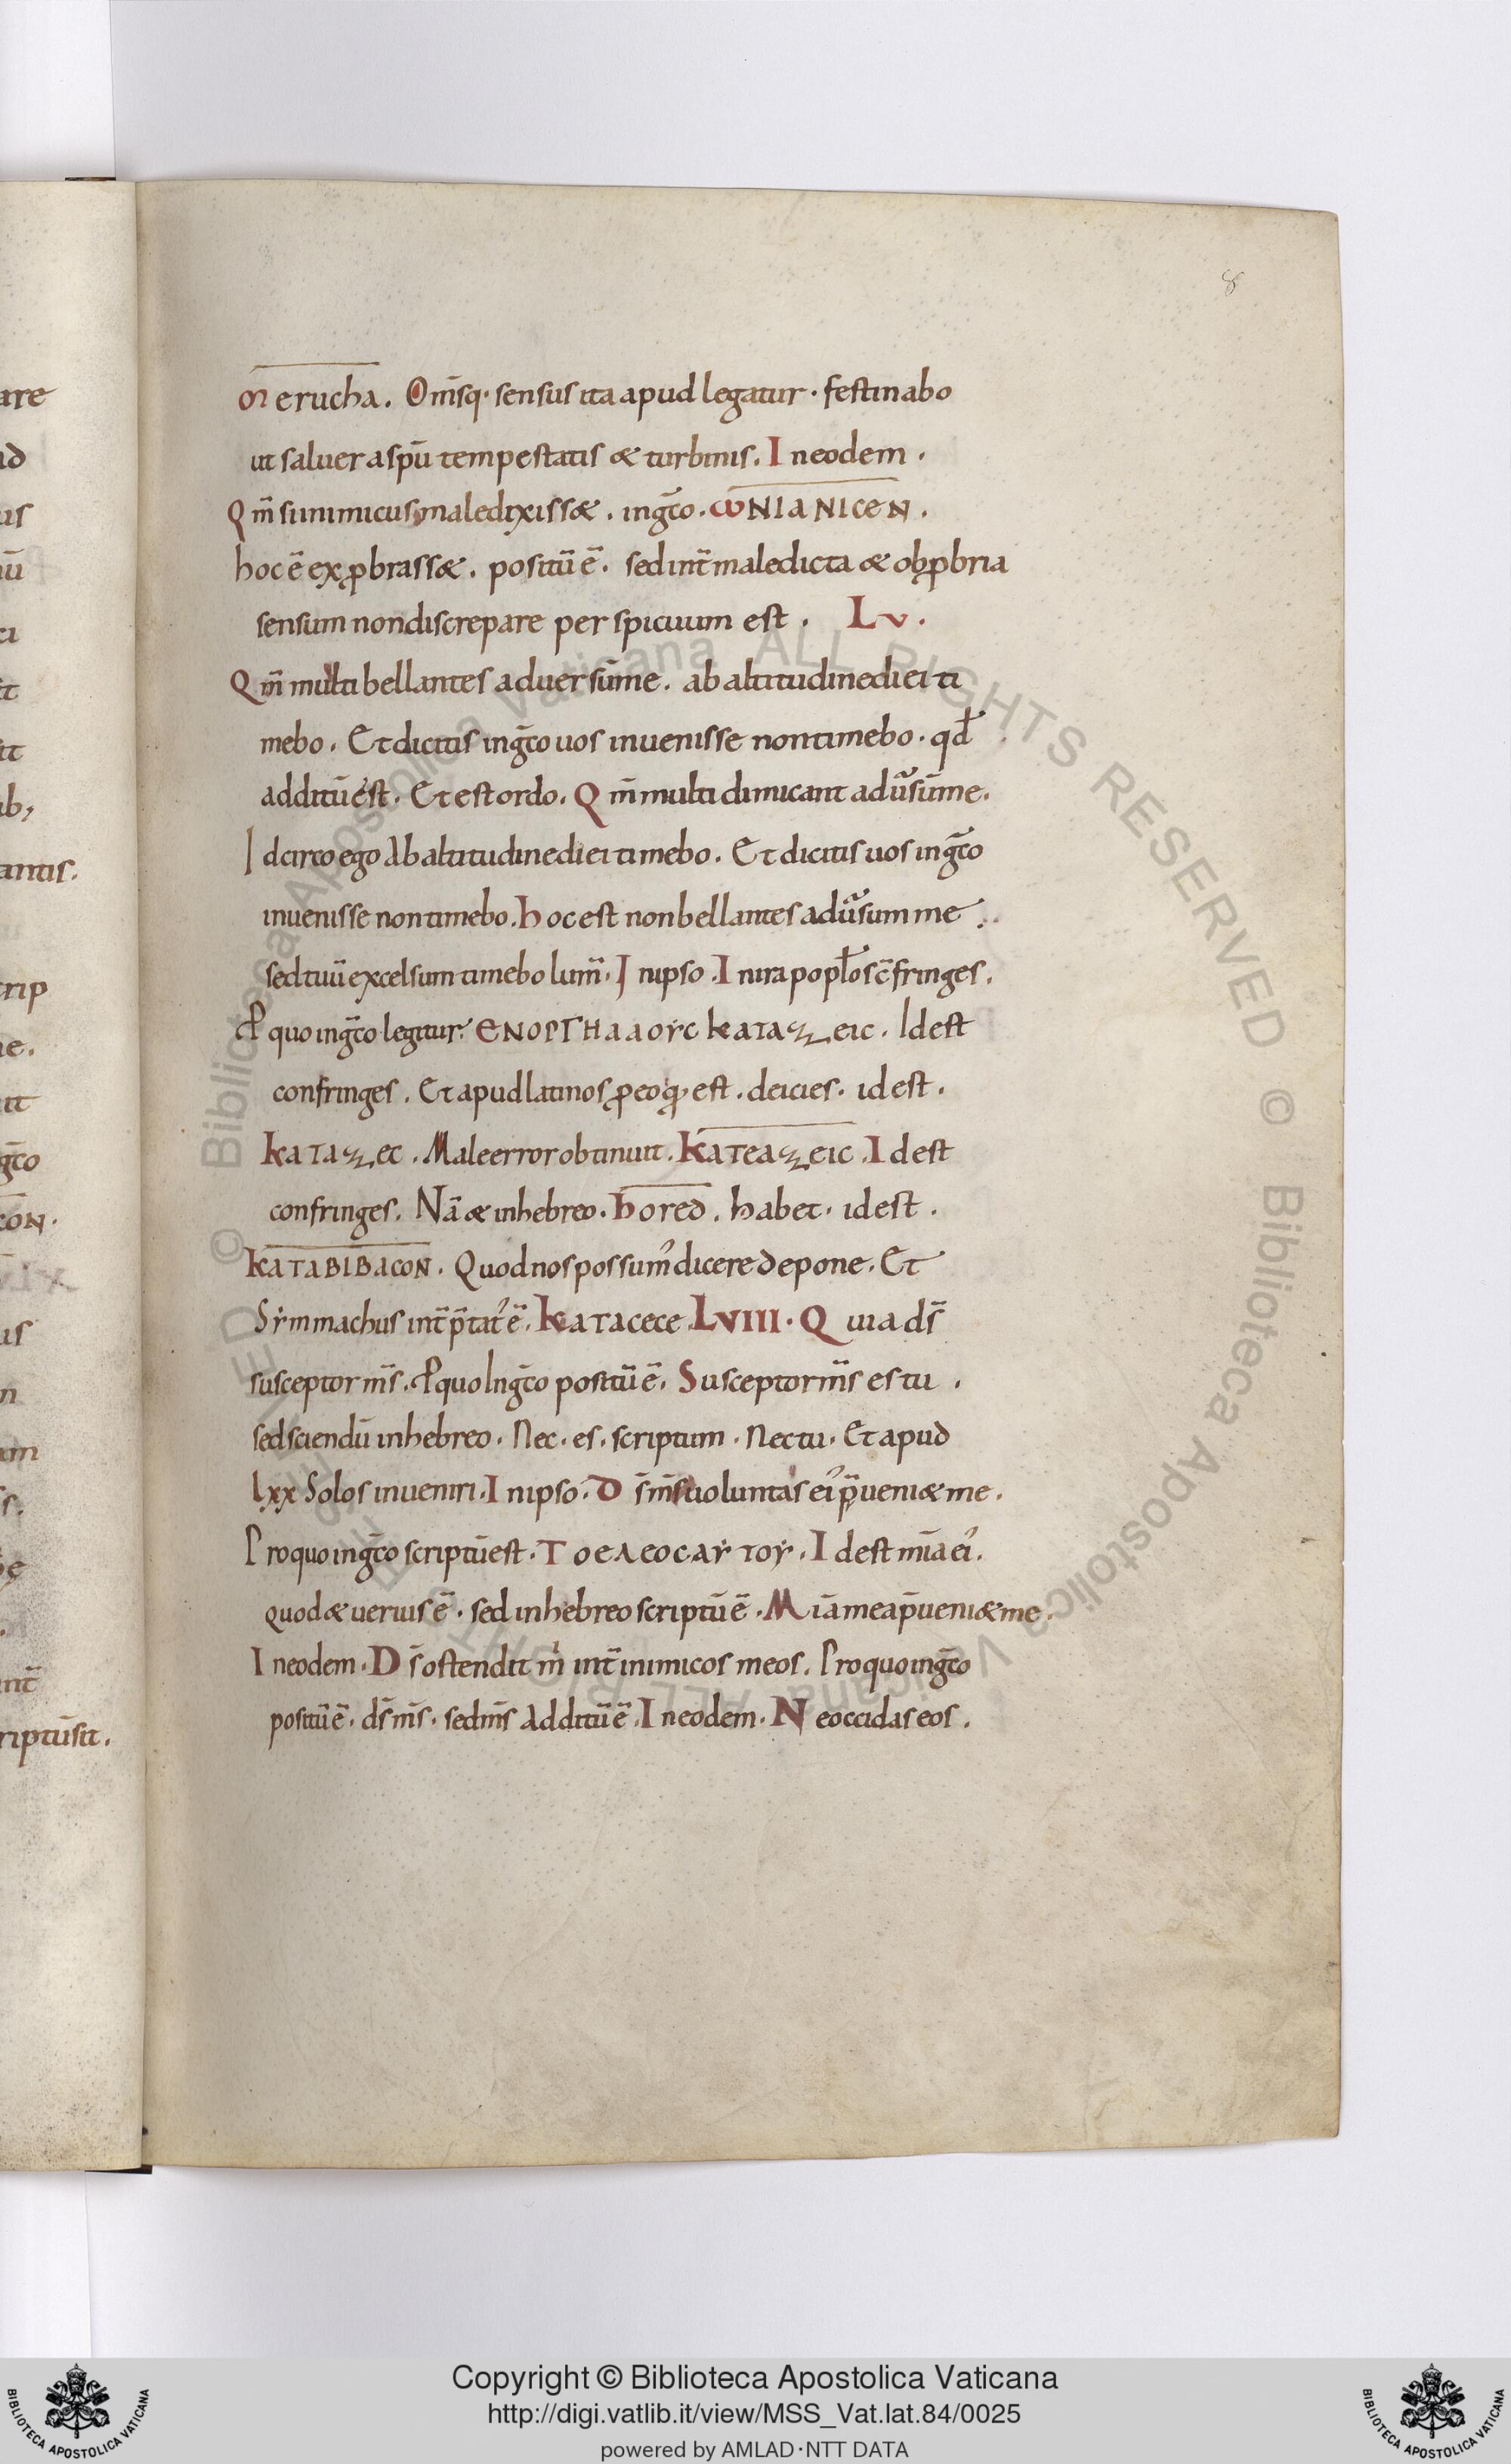 8
are
Merucha. Om̅sq· sensus ita apud legatur· festinabo
ut saluer a spū tempestatis & turbinis. In eodem.
Qm̅ si inimicus maledixiss&. in gc̅o. ωΝΙΑΝΙCΕΝ.
hoc ē exprobrass&. positū ē. sed int̅ maledicta & obprbria
sensum non discrepare perspicuum est. Lv.
Qm̅ multi bellantes adversū me. ab altitudine diei ti
mebo. Et dicitis in gc̅o uos invenisse non timebo. qđ
additū est. Et est ordo. Qm̅ multi dimicant adūsū me.
Idcirco ego Ab altitudine diei timebo. Et dicitis uos in gc̅o
invenisse non timebo. Hoc est non bellantes adūsum me.
sed tuū excelsum timebo lum̅. In ipso. In ira popłos c̅fringes.
P quo in gc̅o legitur. ЄΝΟΡΓΗΛΑΟΥC ΚΑΤΑΞΕΙC. Idest
confringes. Et apud latinos p eo q est. deicies. id est.
ΚΑΤΑΞΕC. Male error obtinuit. ΚΑΤΕΑΞΕΙC. Idest
confringes. Nā & in hebreo. Hored. habet. id est.
ΚΑΤΑΒΙΒΑCΟΝ. Quod nos possum' dicere depone. Et
Symmachus int̅p̅tat' ē. ΚΑΤΑCΕCΕ LVIII. Quia ds̅
susceptor ms̅. P quo In gc̅o positū ē. Susceptor ms̅ es tu.
sed sciendū in hebreo. Nec. es. scriptum. Nec tu. Et apud
lxx Solos inveniri. In ipso. Ds̅ ms̅ uoluntas ei' p̅ueni& me.
Pro quo in gc̅o scriptū est. ΤΟ ΕΛΕΟC ΑΥΤΟΥ. Id est mīa ei'.
quod & uerius ē. sed in hebreo scriptū ē. Mīa mea p̅ueni& me.
In eodem. Ds̅ ostendit m̍ int̅ inimicos meos. Pro quo in gc̅o
positū ē. ds̅ ms̅. sed ms̅ Additū ē. In eodem. Ne occidas eos.
© Biblioteca Apostolica Vaticana ALL RIGHTS RESERVED
Copyright © Biblioteca Apostolica Vaticana
http://digi.vatlib.it/view/MSS_Vat.lat.84/0025
powered by AMLAD·NTT DATA
BIBLIOTECA APOSTOLICA VATICANA
BIBLIOTECA APOSTOLICA VATICANA